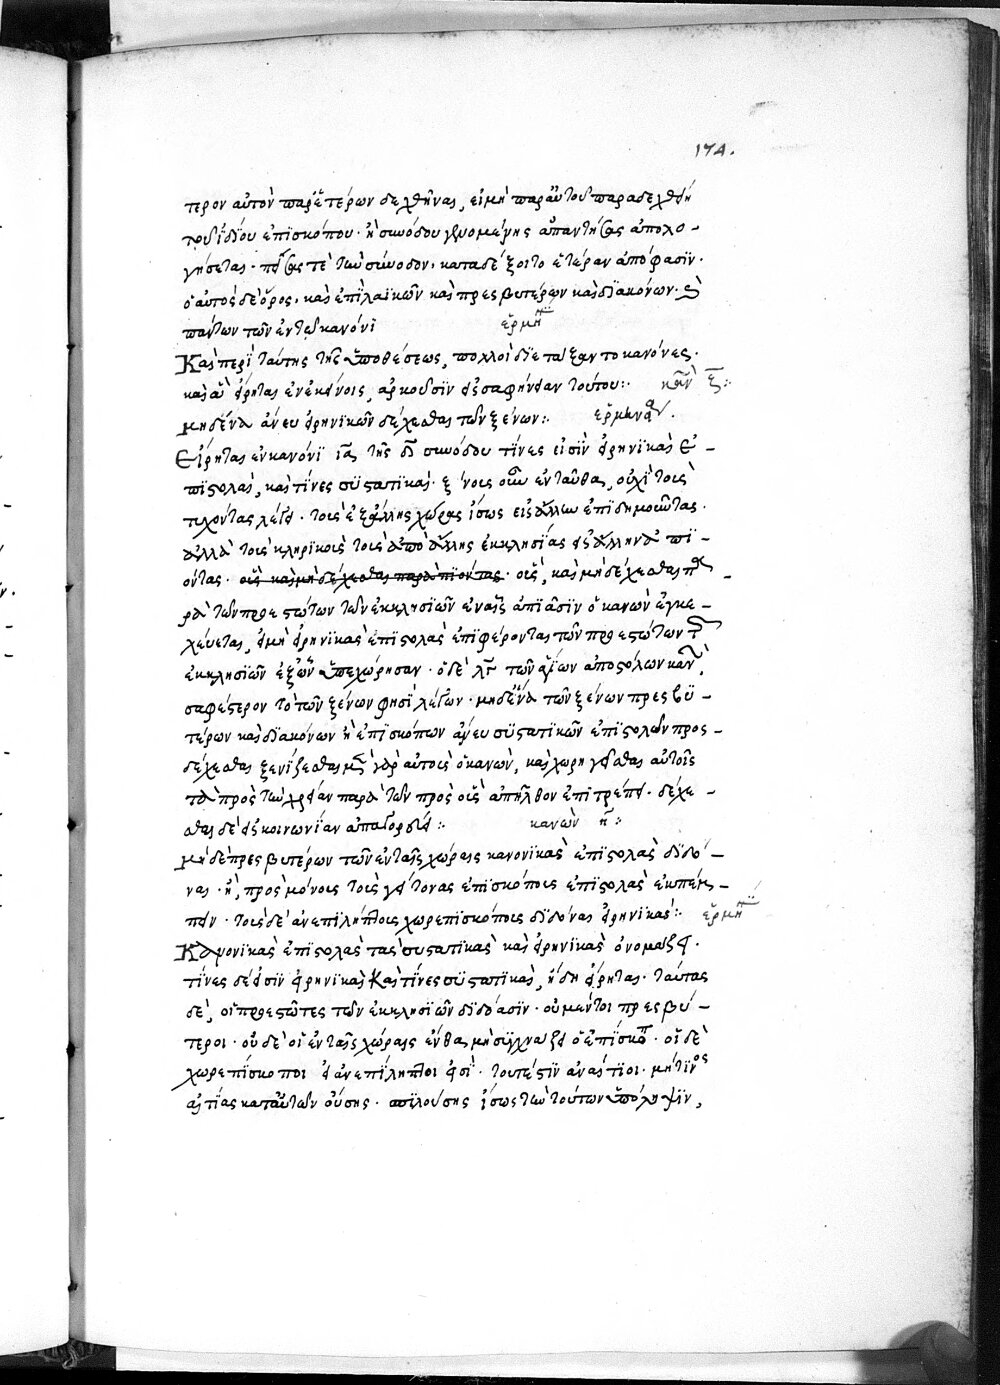 174.
τερον αὐτὸν παρ' ἑτέρων δεχθῆναι, εἰ μὴ παρ' αὐτοῦ παραδεχθῇ
τοῦ ἰδίου ἐπισκόπου· ἢ συνόδου γενομένης ἀπαντήσας ἀπολο-
γήσεται· πείσας τε τὴν σύνοδον, καταδέξοιτο ἑτέραν ἀπόφασιν·
ὁ αὐτὸς δὲ ὅρος, καὶ ἐπὶ λαϊκῶν καὶ πρεσβυτέρων καὶ διακόνων· καὶ
πάντων τῶν ἐν τῷ κανόνι ἑρμη
Καὶ περὶ ταύτης τῆς ὑποθέσεως, πολλοὶ διεταξαν το κανόνες·
καὶ ἃ εἴρηται ἐν ἐκείνοις, ἀρκοῦσιν εἰς σαφήνειαν τούτου:· καν ζ:·
μηδένα ἄνευ εἰρηνικῶν δέχεσθαι τῶν ξένων:· ἑρμηνεία.
Εἴρηται ἐν κανόνι ια της δ συνόδου τίνες εἰσὶν εἰρηνικαὶ ἐ-
πιστολαὶ, καὶ τίνες συστατικαὶ· ξένους οὖν ἐνταῦθα, οὐχὶ τοὺς
τυχόντας λέγει· τοὺς ἐξ ἄλλης χώρας ἴσως εἰς ἄλλην ἐπιδημοῦντας·
ἀλλὰ τοὺς κληρικοὺς τοὺς ἀπὸ ἄλλης ἐκκλησίας εἰς ἄλλην ἀπι-
όντας· οὓς, καὶ μὴ δέχεσθαι πα-
ρὰ τῶν προεστώτων τῶν ἐκκλησιῶν ἐν αἷς ἀπίασιν ὁ κανὼν ἐγκε-
λεύεται, εἰ μὴ εἰρηνικὰς ἐπιστολὰς ἐπιφέρονται τῶν προεστώτων τ
ἐκκλησιῶν ἐξ ὧν ὑπεχώρησαν· ὁ δὲ λγ τῶν ἁγίων ἀποστόλων καν,
σαφέστερον τὸ τῶν ξένων φησὶ λέγων· μηδένα τῶν ξένων πρεσβυ-
τέρων καὶ διακόνων ἢ ἐπισκόπων ἄνευ συστατικῶν ἐπιστολῶν προσ-
δέχεσθαι ξενίζεσθαι μὲν γὰρ αὐτοὺς ὁ κανών, καὶ χορηγεῖσθαι αὐτοῖς
τὰ πρὸς τὴν χρείαν παρὰ τῶν πρὸς οὓς ἀπῆλθον ἐπιτρέπει· δέχε-
σθαι δὲ εἰς κοινωνίαν ἀπαγορεύει:· κανὼν η:·
μὴ δὲ πρεσβυτέρων τῶν ἐν ταῖς χώραις κανονικὰς ἐπιστολὰς διδό-
ναι· ἢ, πρὸς μόνοις τοὺς γείτονας ἐπισκόποις ἐπιστολὰς ἐκπέμ-
πειν· τοὺς δὲ ἀνεπιλήπτοις χωρεπισκόποις διδόναι εἰρηνικάς:· ἑρμη
Κανονικὰς ἐπιστολὰς τὰς συστατικὰς καὶ εἰρηνικὰς ὀνομάζει·
τίνες δέ εἰσιν εἰρηνικαὶ καὶ τίνες συστατικαὶ, ἤδη εἴρηται· ταύτας
δὲ, οἱ προεστῶτες τῶν ἐκκλησιῶν διδόασιν· οὐ μέντοι πρεσβύ-
τεροι· οὐδὲ οἱ ἐν ταῖς χώραις ἔνθα μὴ συχνάζει ὁ ἐπίσκοπ· οἱ δὲ
χωρεπίσκοποι εἰ ἀνεπίληπτοι εἰσι· τουτέστιν ἀναίτιοι· μή τινος
αἰτίας κατ' αὐτῶν οὔσης· σπιλούσης ἴσως τὴν τούτων ὑπόληψιν,